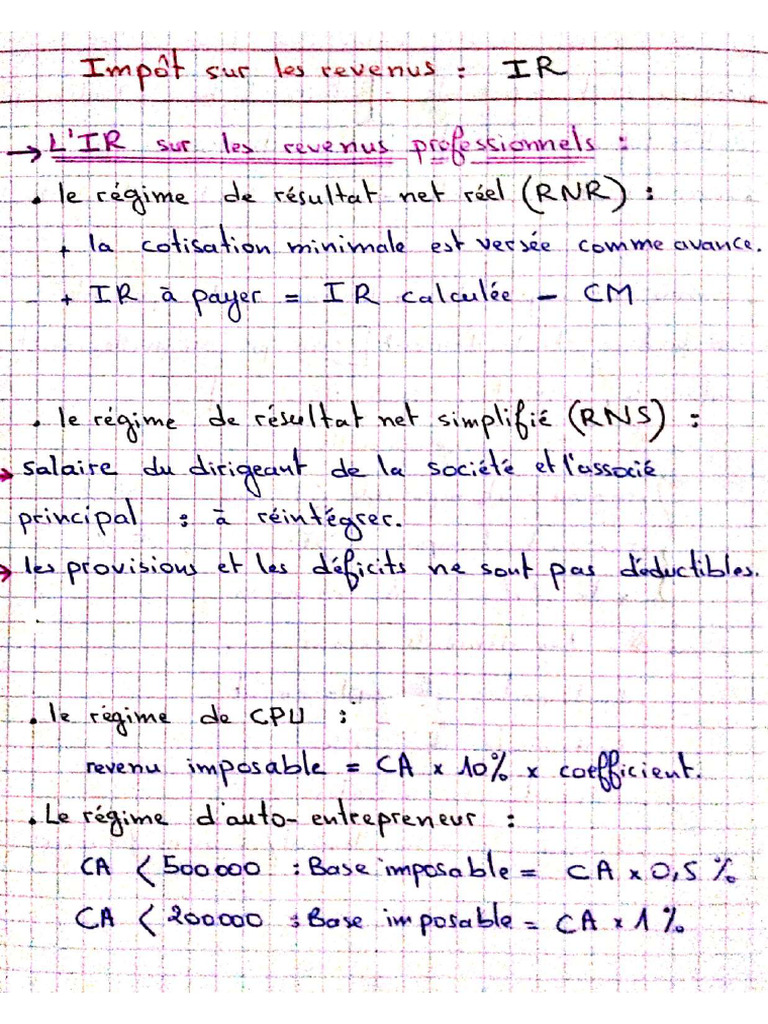 Impôt sur les revenus : IR
→ L'IR sur les revenus professionnels :
• le régime de résultat net réel (RNR) :
+ la cotisation minimale est versée comme avance.
+ IR à payer = IR calculée - CM
• le régime de résultat net simplifié (RNS) :
→ salaire du dirigeant de la société et l'associé
principal : à réintégrer.
→ les provisions et les déficits ne sont pas déductibles.
• le régime de CPU :
revenu imposable = CA x 10% x coefficient.
• Le régime d'auto-entrepreneur :
CA < 500000 : Base imposable = CA x 0,5 %
CA < 200000 : Base imposable = CA x 1 %